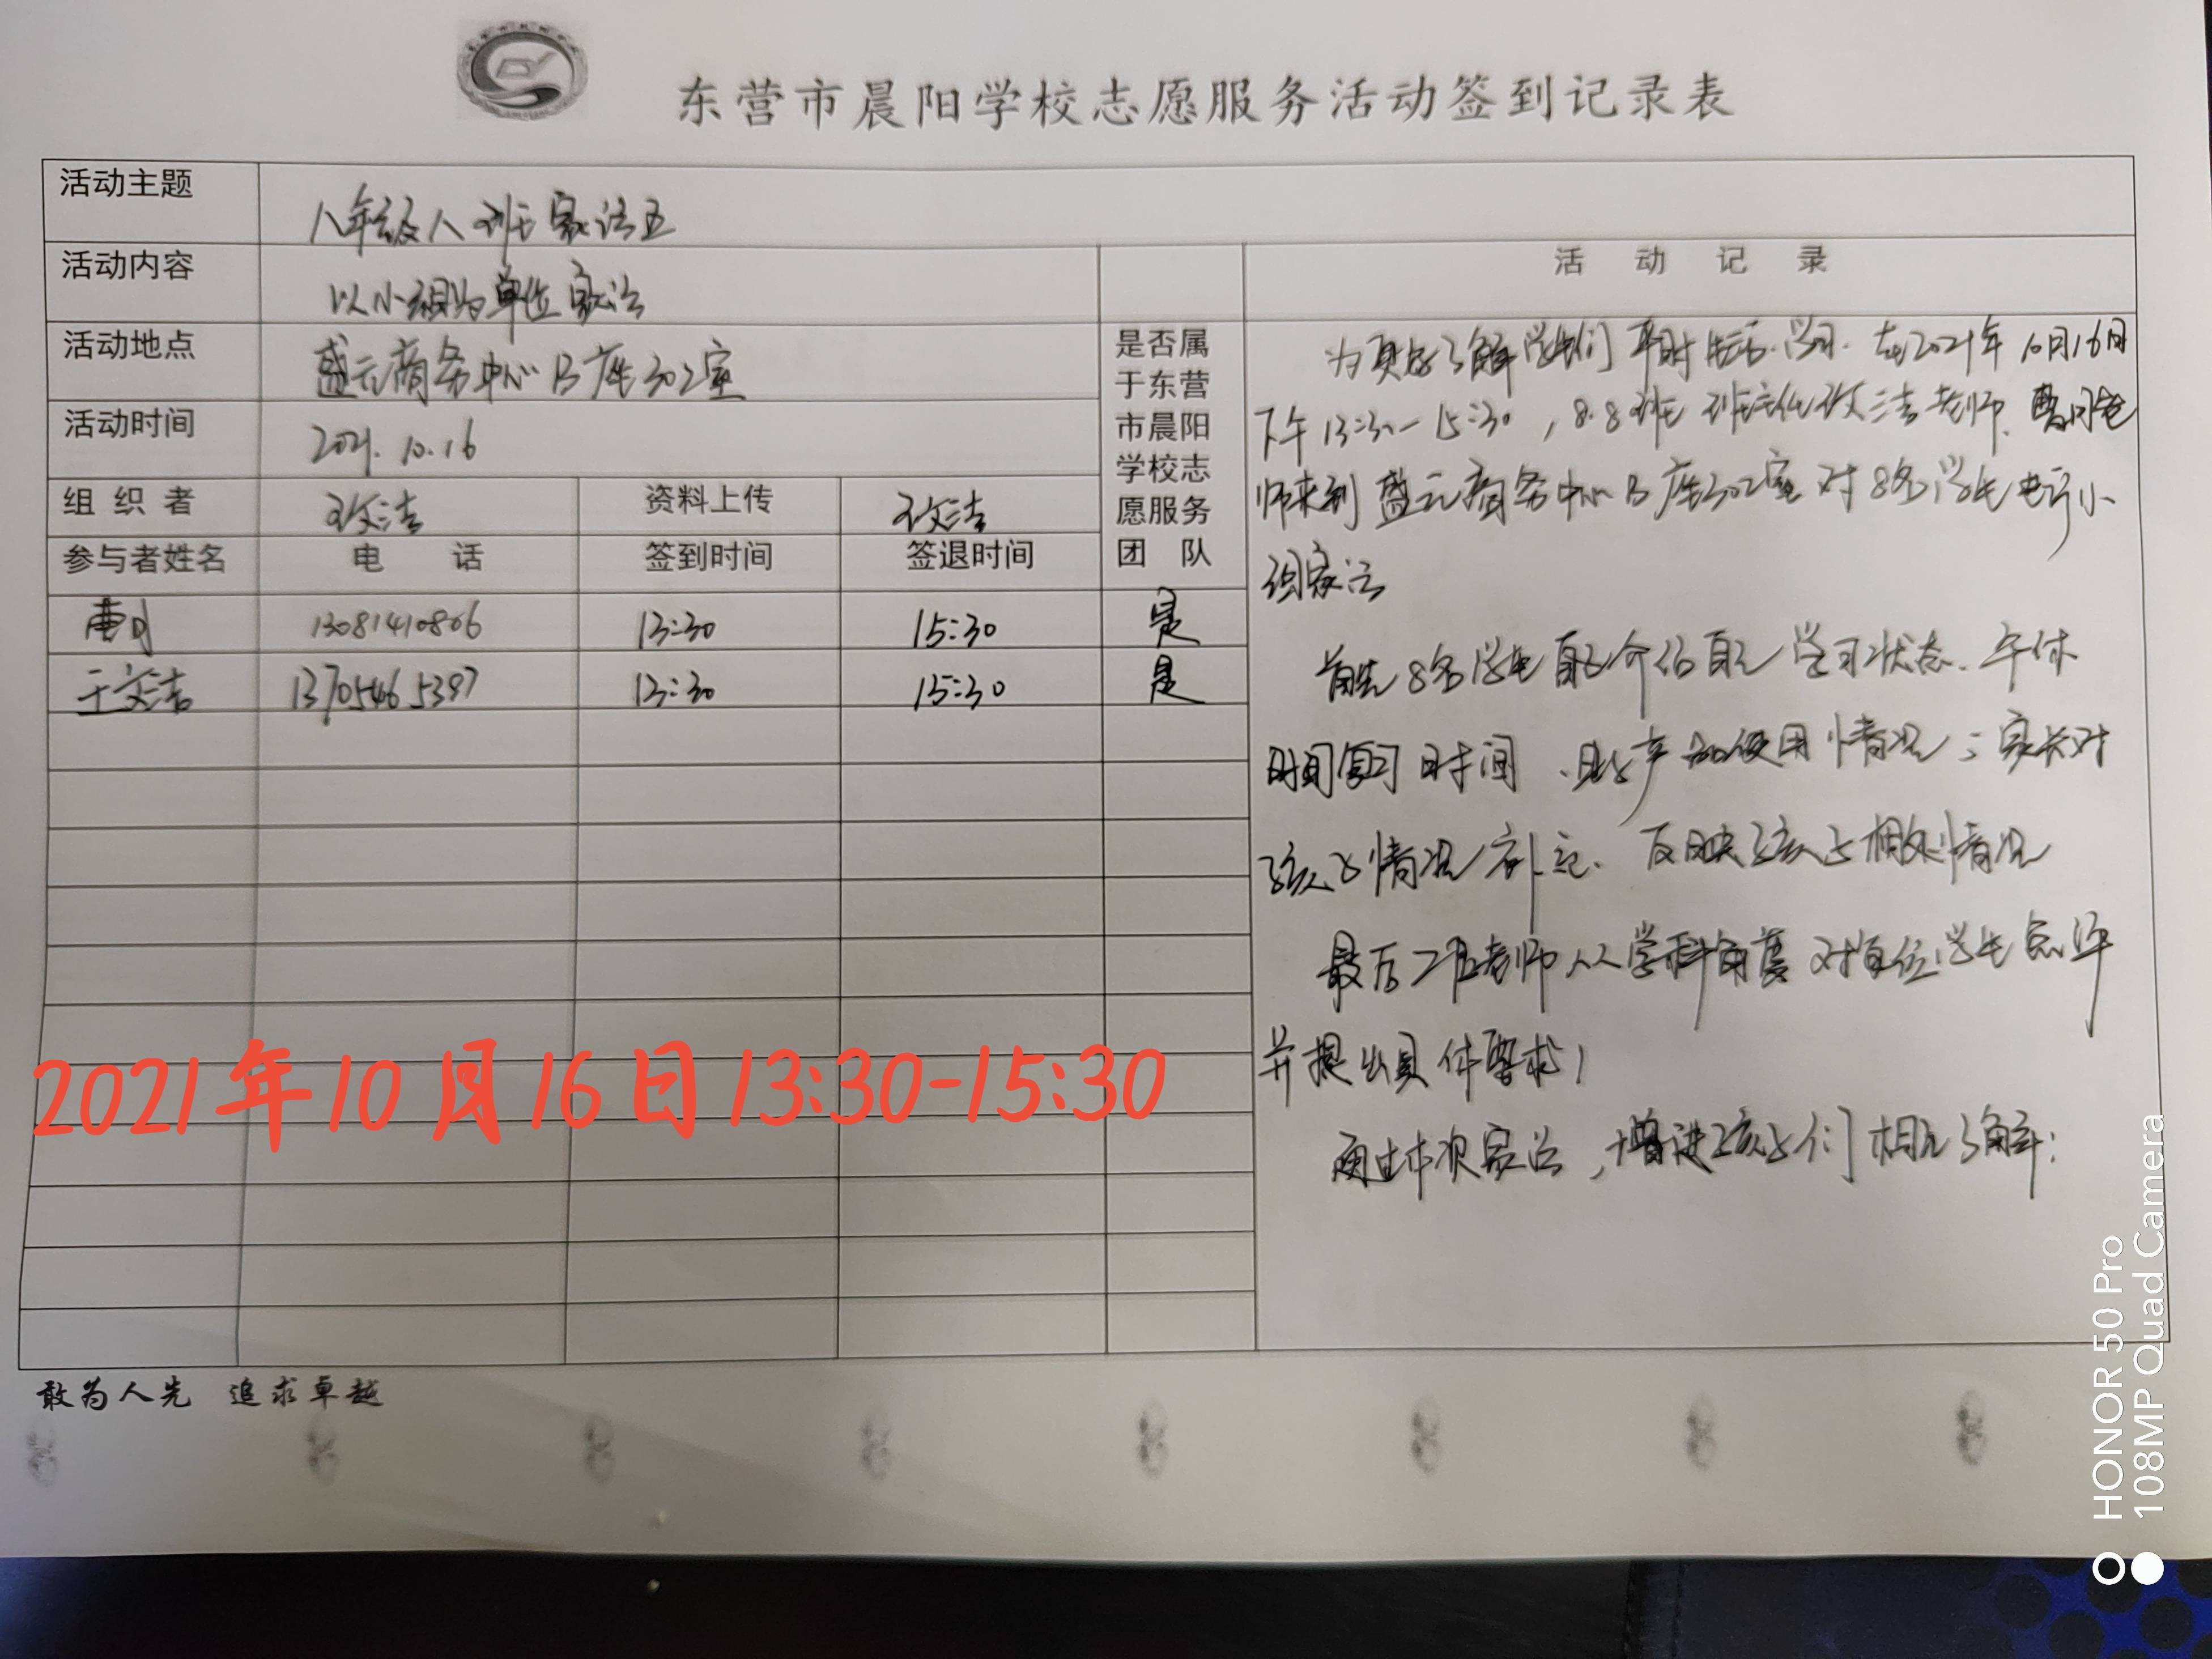 东营市晨阳学校志愿服务活动签到记录表
活动主题 八年级八班家访五
活动内容 以小组为单位家访
活动地点 盛元商务中心B座302室
活动时间 2021.10.16
组织者 王文洁 资料上传 王文洁
参与者姓名 电话 签到时间 签退时间
是否属
于东营
市晨阳
学校志
愿服务
团队
曹 13081410806 13:30 15:30 是
王文洁 13705465397 13:30 15:30 是
活动记录
为更好了解学生们平时生活、学习,在2021年10月16日
下午13:30-15:30,8.8班班主任王文洁老师、曹老
师来到盛元商务中心B座302室对8名学生进行小
组家访
首先8名学生自己介绍自己学习状态、午休
时间复习时间、电子产品使用情况;家长对
孩子情况补充、反映孩子相处情况
最后二位老师从学科角度对每位学生点评
并提出具体要求!
通过本次家访,增进孩子们相互了解;
2021年10月16日13:30-15:30
敢为人先 追求卓越
HONOR 50 Pro
108MP Quad Camera